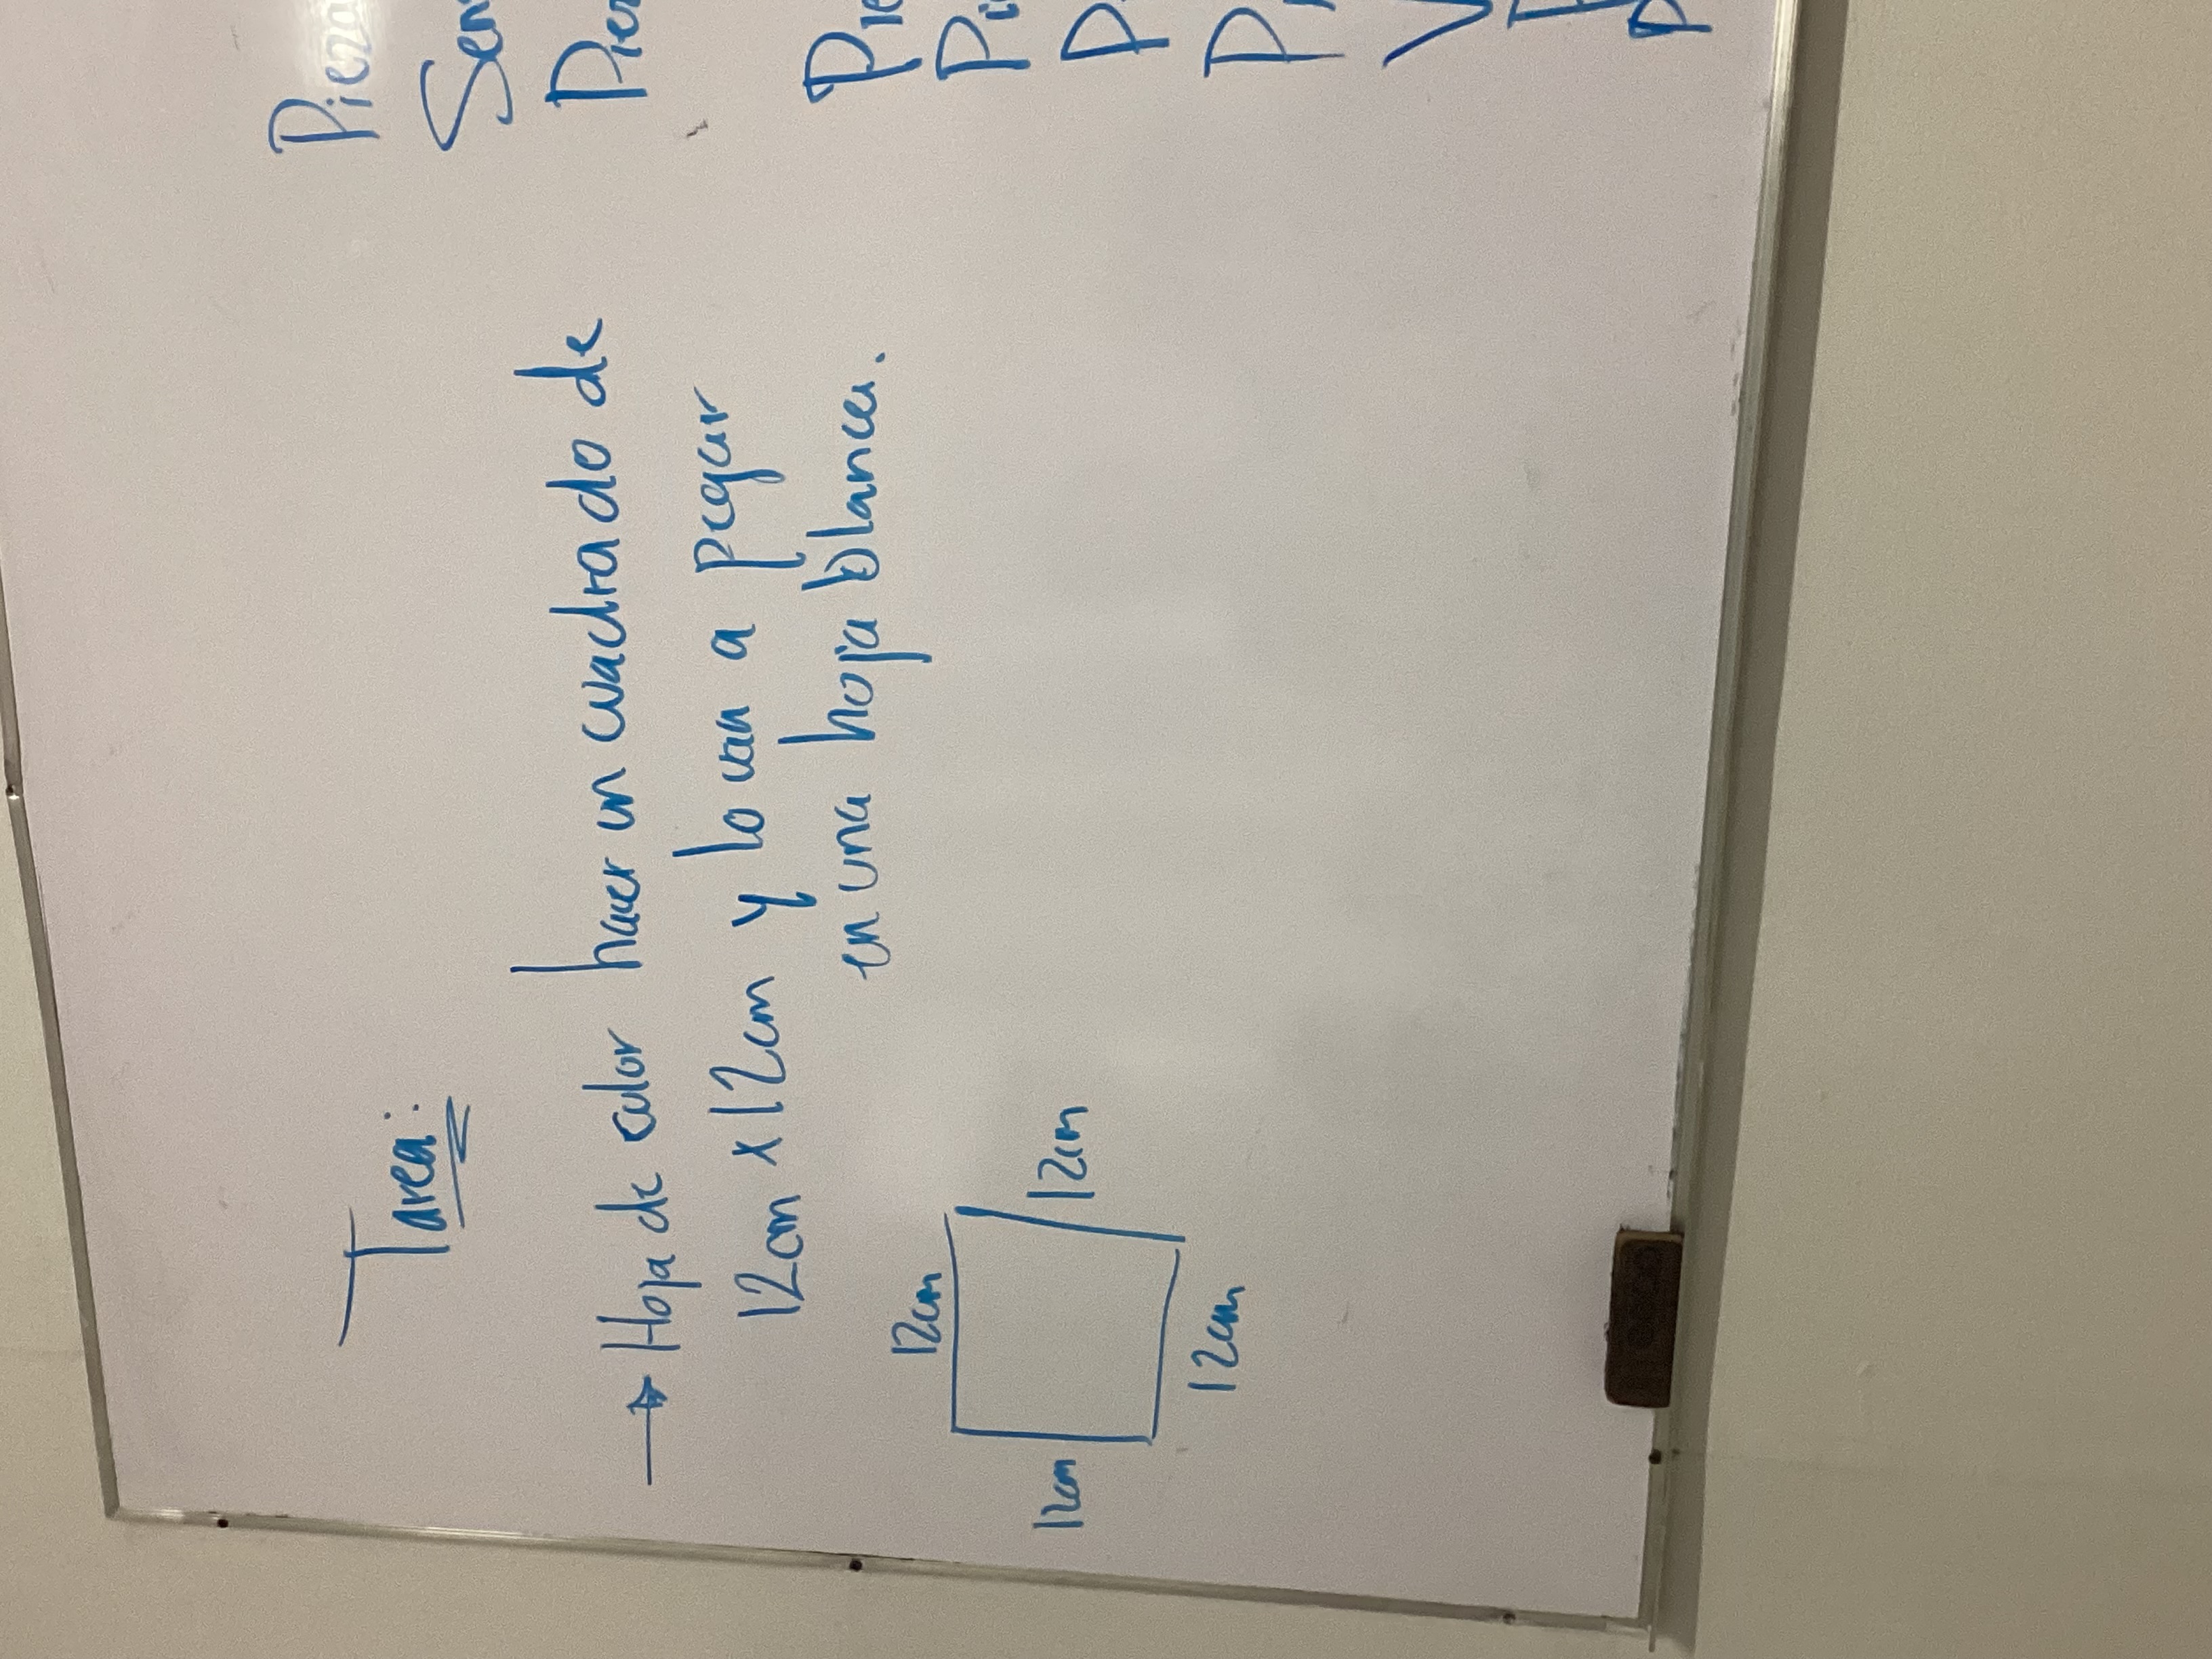 Tarea:
→ Hoja de color hacer un cuadrado de
12cm x 12cm y lo van a pegar
en una hoja blanca.
12cm
12cm
12cm
12cm
Pieza